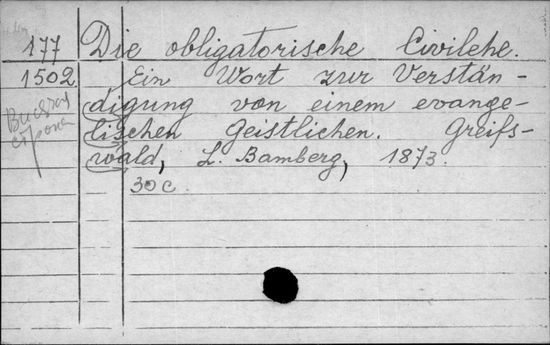 177 Die obligatorische Civilehe.
1502 Ein Wort zur Verstän-
digung von einem evange-
lischen Geistlichen. Greifs-
wald, L. Bamberg, 1873.
30 c.